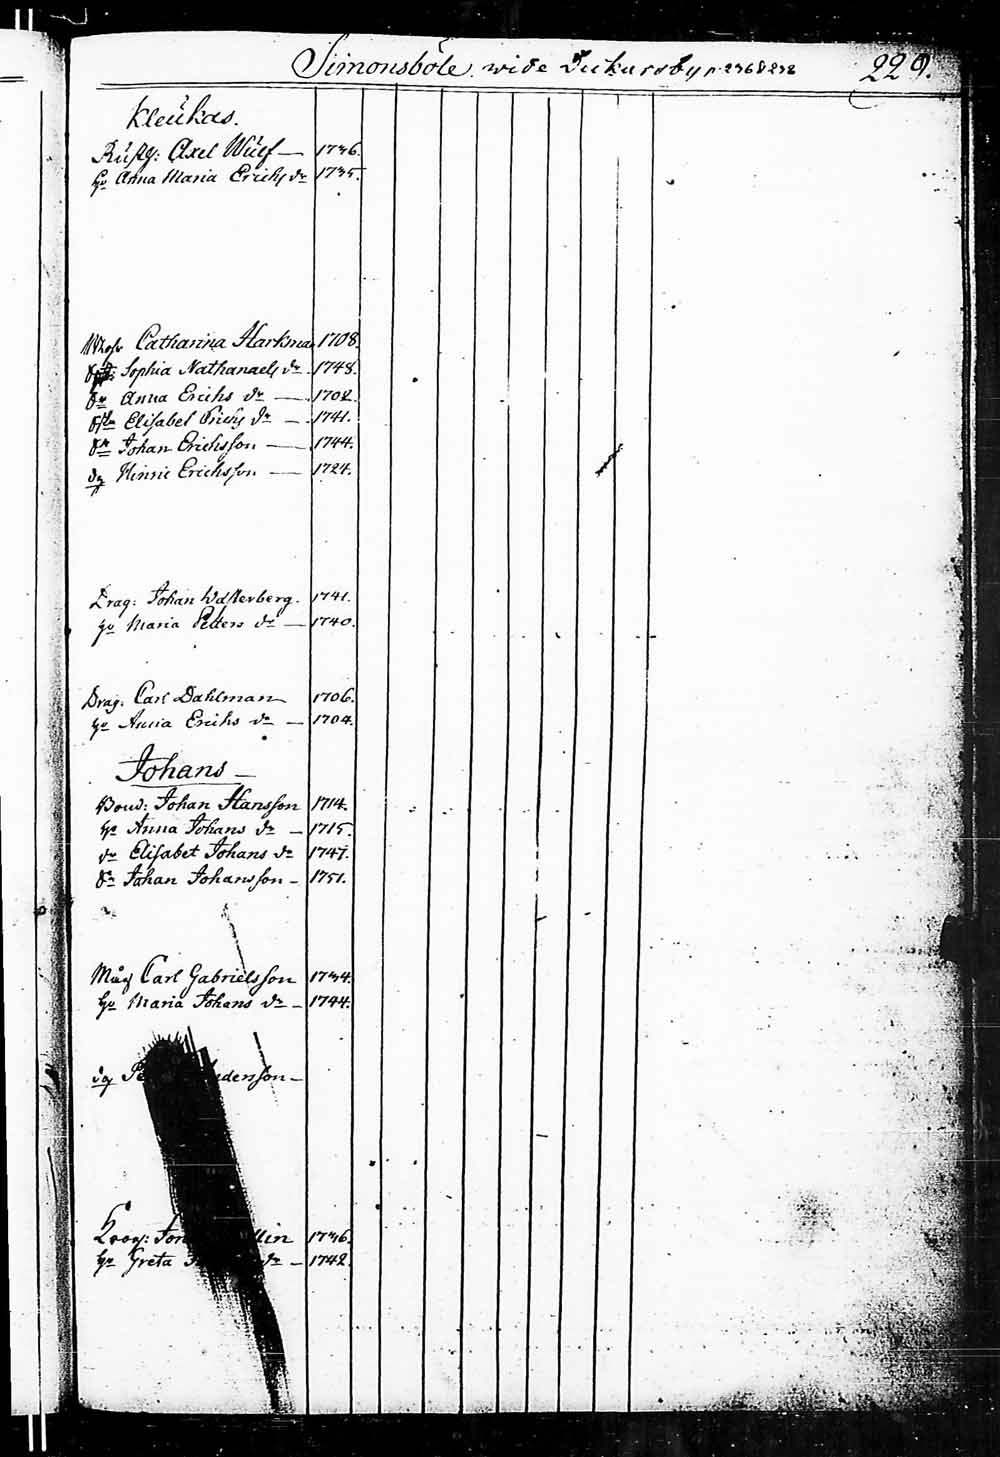 Simonsböle wide Dickursby p 236 & 232 229.
Kleükas.
Rüstg: Axel Wülf — 1736.
Hu Anna Maria Erichs dr 1735.
Catharina Harkman 1708.
Sophia Nathanaels dr 1748.
Sr Anna Erichs dr — 1702.
Elisabet Erichs dr — 1741.
Sn Johan Erichsson — 1744.
dg Hinric Erichsson — 1724.
Drag: Johan Westerberg. 1741.
hu Maria Petters dr — 1740.
Drag: Carl Dahlman 1706.
hu Anna Erichs dr — 1704.
Johans —
Bond: Johan Hansson 1714.
hu Anna Johans dr — 1715.
dr Elisabet Johans dr 1747.
Sn Johan Johansson — 1751.
Måg Carl Gabrielsson 1734.
hu Maria Johans dr — 1744.
dg
1736.
hu Greta dr — 1742.